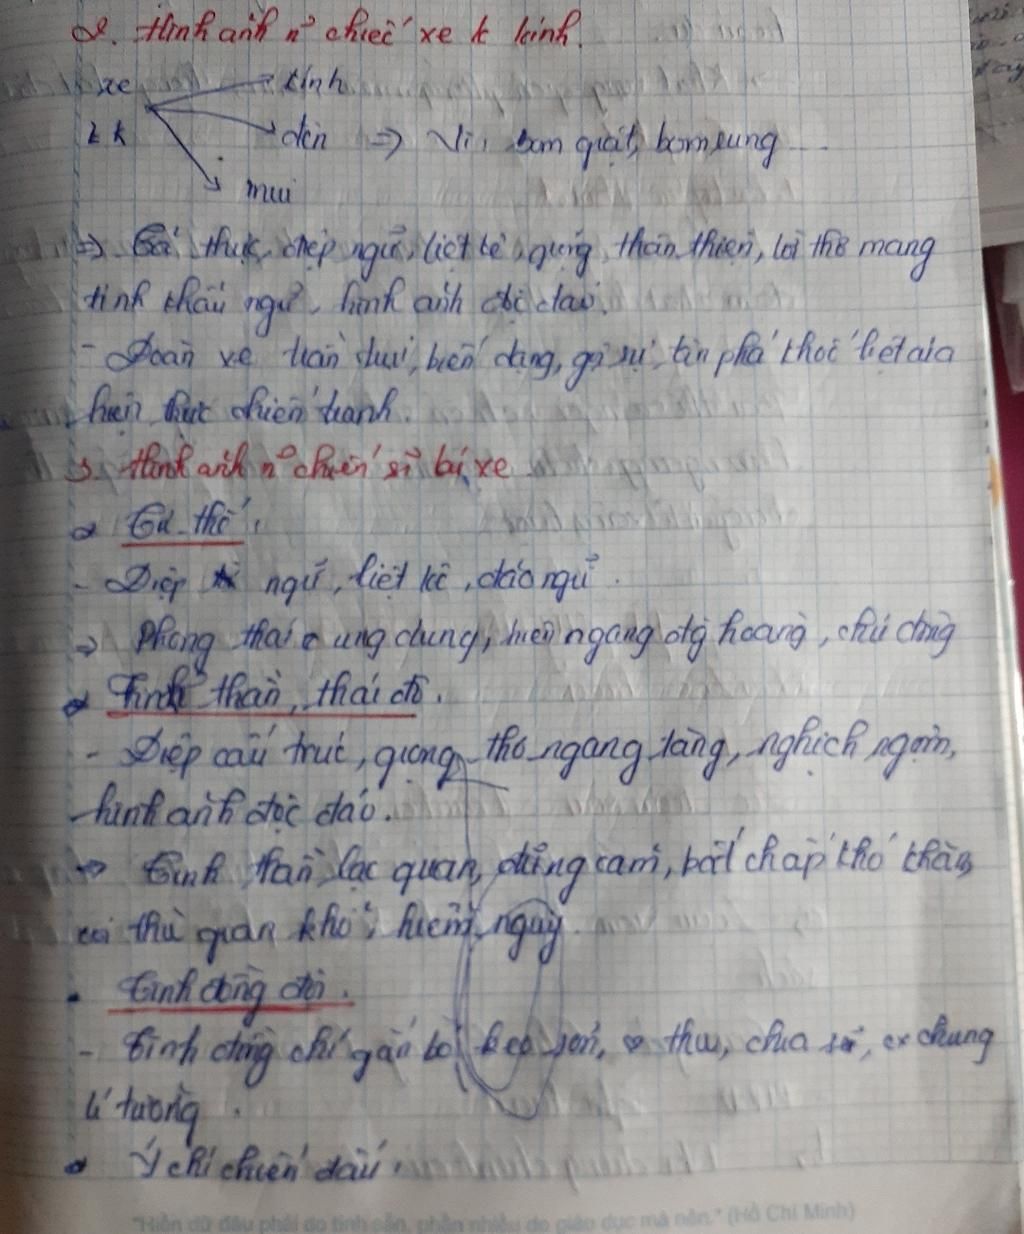 2. Hình ảnh n~ chiếc xe k kính.
xe
k k
kính
đèn => Vì, bom giật, bom rung ...
mui
=> Tả thực, điệp ngữ, liệt kê, giọng, thân thiện, lời thơ mang
tính khẩu ngữ, hình ảnh độc đáo.
- Đoàn xe trần trụi, biến dạng, gợi sự tàn phá khốc liệt của
hiện thực chiến tranh.
3. Hình ảnh n~ chiến sĩ lái xe
Tư thế.
- Điệp ngữ, liệt kê, đảo ngữ.
=> Phong thái ung dung, hiên ngang đg hoàng, chủ động
Tinh thần, thái độ.
- Điệp cấu trúc, giọng thơ ngang tàng, nghịch ngợm,
hình ảnh độc đáo.
=> Tinh thần lạc quan, dũng cảm, bất chấp khó khăn,
coi thường khó, hiểm nguy.
- Tình đồng đội.
- Tình đồng chí gắn bó keo sơn, chia sẻ, chung
lí tưởng.
Ý chí chiến đấu.
"Hiền dữ đâu phải do tính sẵn, phần nhiều do giáo dục mà nên." (Hồ Chí Minh)